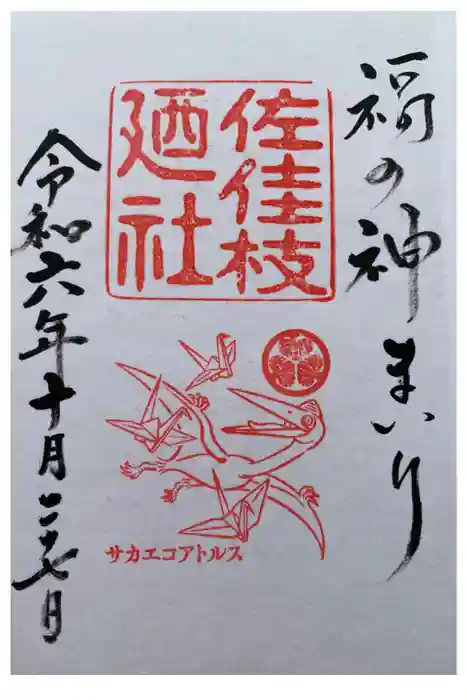 福の神まいり
佐佳枝
廼社
サカエコアトルス
令和六年十月二十七日